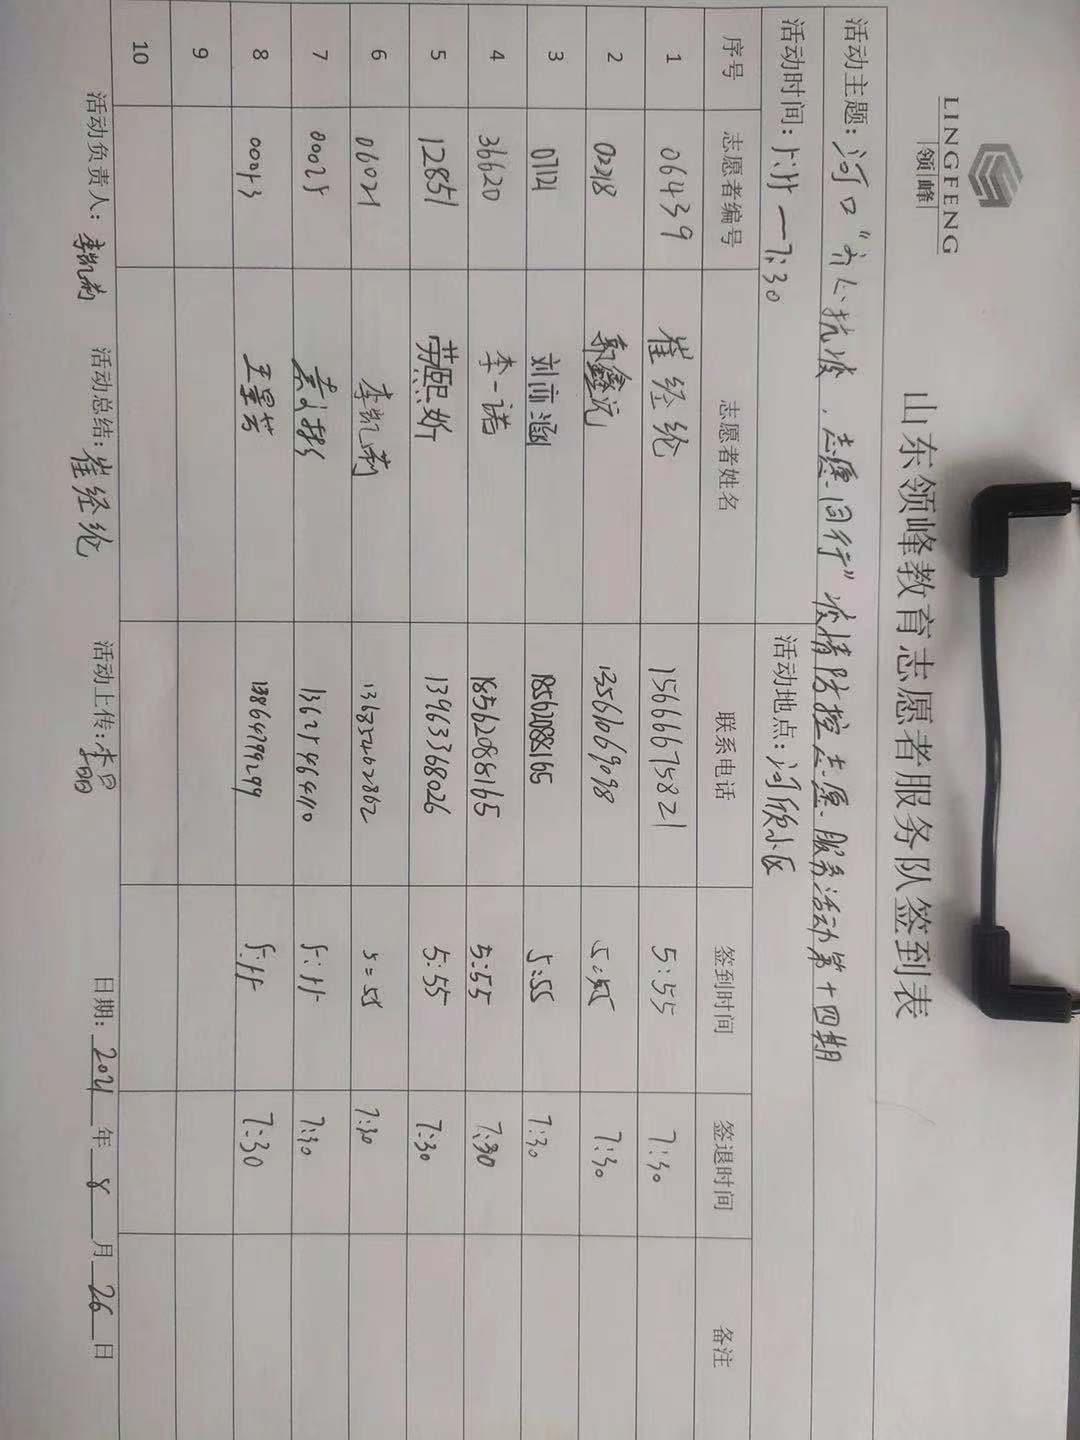 LINGFENG
领峰
山东领峰教育志愿者服务队签到表
活动主题：河口"齐心抗疫，志愿同行"疫情防控志愿服务活动第十四期
活动时间：5:55—7:30 活动地点：河欣小区
序号 志愿者编号 志愿者姓名 联系电话 签到时间 签退时间 备注
1 06439 崔经纶 15666675821 5:55 7:30
2 02218 郭鑫沅 13561069098 5:55 7:30
3 07121 刘亦涵 18562088165 5:55 7:30
4 36620 李一诺 18562088165 5:55 7:30
5 12851 劳熙妍 13963368026 5:55 7:30
6 06021 李凯莉 13685462862 5:55 7:30
7 00025 5:55 7:30
8 00043 王墨芸 13864799299 5:55 7:30
9
10
活动负责人： 活动总结：崔经纶 活动上传：李晶 日期：2021年8月26日